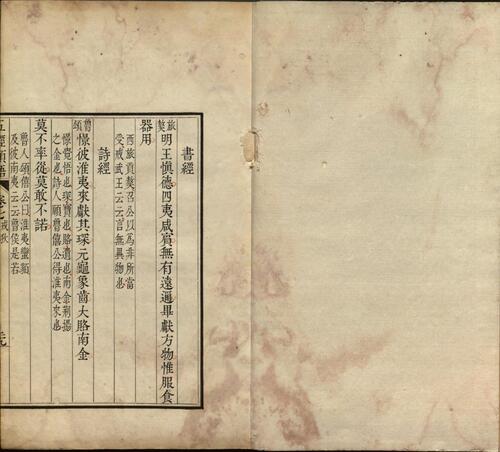 書經
旅獒
明王愼德四夷咸賓無有遠邇畢獻方物惟服食
器用
西旅貢獒召公以為非所當
受戒武王云云言無異物也
詩經
魯頌
憬彼淮夷來獻其琛元龜象齒大賂南金
憬覺悟也琛寶也賂遺也南金荊揚
之金也詩人願魯僖公得淮夷來也
莫不率從莫敢不諾
魯人頌僖公曰淮夷蠻貊
及彼南夷云云魯侯是若
五經類語 卷七 戎狄